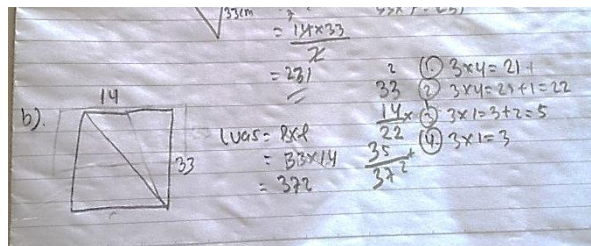 33cm
= 14x33
2
= 231
b).
14
33
Luas = pxl
= 33x14
= 372
33
14 x
22
35 +
372
① 3x4 = 21+
② 3x4 = 21+1=22
③ 3x1=3+2=5
④ 3x1=3